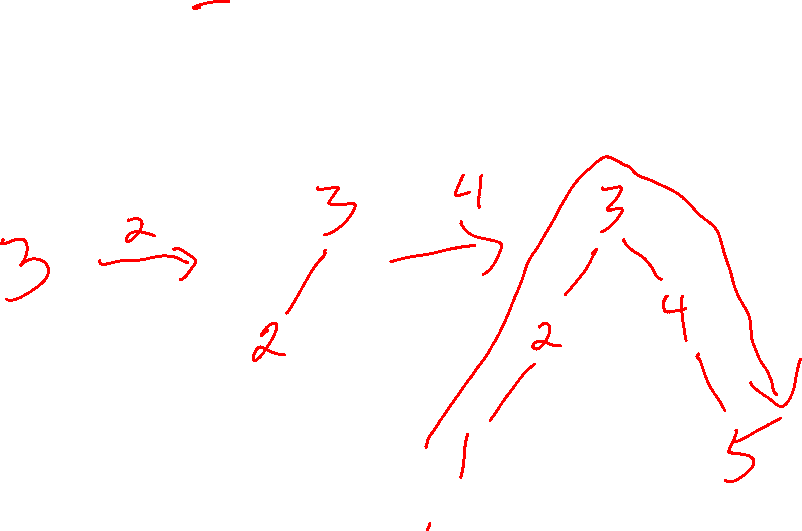 3 2 3 4 3
2 2 4
1 5